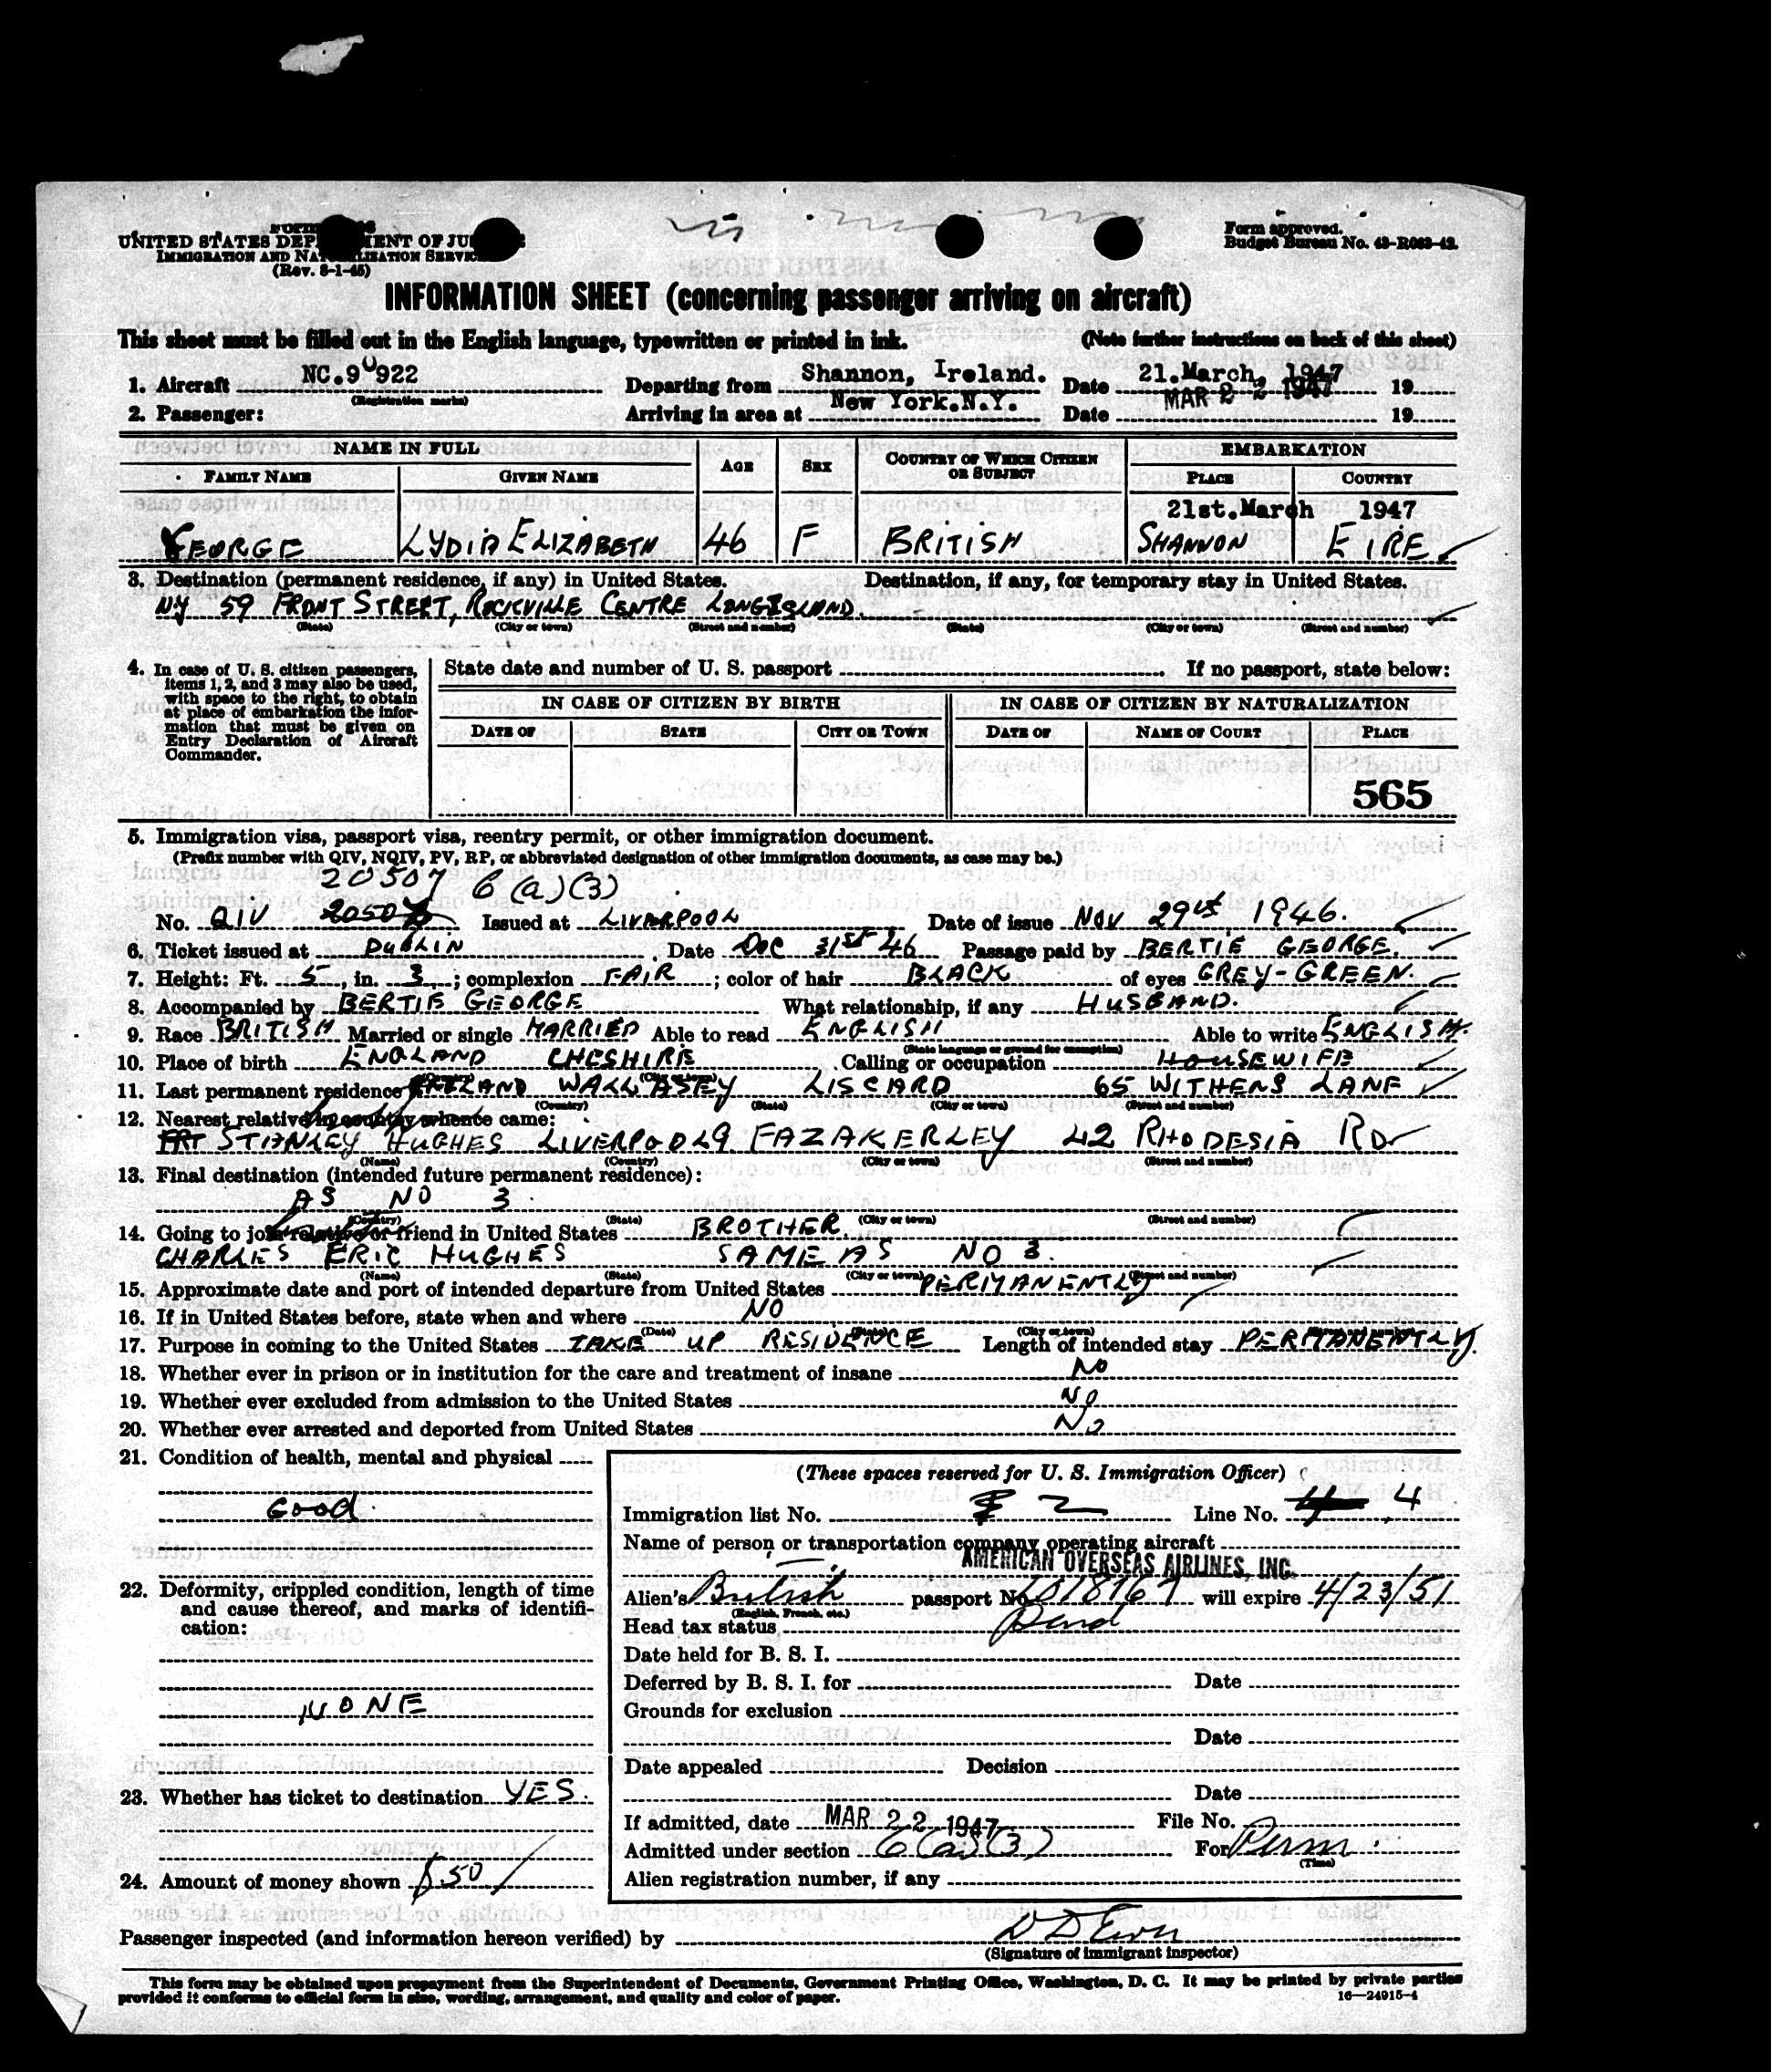 UNITED STATES DEP MENT OF JU
IMMIGRATION AND NAT LIZATION SERVIC
(Rev. 8-1-45)
Form approved.
Budget Bureau No. 43-R083-42.
INFORMATION SHEET (concerning passenger arriving on aircraft)
This sheet must be filled out in the English language, typewritten or printed in ink. (Note further instructions on back of this sheet)
1. Aircraft NC.90922 Departing from Shannon, Ireland. Date 21.March, 1947 19
(Registration marks)
2. Passenger: Arriving in area at New York.N.Y. Date MAR 22 1947 19
NAME IN FULL AGE SEX COUNTRY OF WHICH CITIZEN OR SUBJECT EMBARKATION
FAMILY NAME GIVEN NAME PLACE COUNTRY
21st.March 1947
GEORGE LYDIA ELIZABETH 46 F BRITISH SHANNON EIRE
3. Destination (permanent residence, if any) in United States. Destination, if any, for temporary stay in United States.
NY 59 FRONT STREET, ROCKVILLE CENTRE LONGISLAND.
(State) (City or town) (Street and number) (State) (City or town) (Street and number)
4. In case of U. S. citizen passengers, items 1, 2, and 3 may also be used, with space to the right, to obtain at place of embarkation the information that must be given on Entry Declaration of Aircraft Commander.
State date and number of U. S. passport If no passport, state below:
IN CASE OF CITIZEN BY BIRTH IN CASE OF CITIZEN BY NATURALIZATION
DATE OF STATE CITY OR TOWN DATE OF NAME OF COURT PLACE
565
5. Immigration visa, passport visa, reentry permit, or other immigration document.
(Prefix number with QIV, NQIV, PV, RP, or abbreviated designation of other immigration documents, as case may be.)
20507 6(a)(3)
No. QIV Issued at LIVERPOOL Date of issue NOV 29th 1946.
6. Ticket issued at DUBLIN Date DEC 31ST 46 Passage paid by BERTIE GEORGE.
7. Height: Ft. 5, in. 3; complexion FAIR; color of hair BLACK of eyes GREY-GREEN.
8. Accompanied by BERTIE GEORGE What relationship, if any HUSBAND.
9. Race BRITISH Married or single MARRIED Able to read ENGLISH Able to write ENGLISH.
(State language or ground for exemption)
10. Place of birth ENGLAND CHESHIRE Calling or occupation HOUSEWIFE
(Country) (City or town)
11. Last permanent residence ENGLAND WALLASEY LISCARD 65 WITHENS LANE
(Country) (State) (City or town) (Street and number)
12. Nearest relative in country whence came:
STANLEY HUGHES LIVERPOOL9 FAZAKERLEY 42 RHODESIA RD
(Name) (Country) (City or town) (Street and number)
13. Final destination (intended future permanent residence):
AS NO 3.
(Country) (State) (City or town) (Street and number)
14. Going to join relative or friend in United States BROTHER.
CHARLES ERIC HUGHES SAME AS NO 3.
(Name) (State) (City or town) (Street and number)
15. Approximate date and port of intended departure from United States PERMANENTLY
16. If in United States before, state when and where NO
(Date) (State) (City or town) (Street and number)
17. Purpose in coming to the United States TAKE UP RESIDENCE Length of intended stay PERMANENTLY.
18. Whether ever in prison or in institution for the care and treatment of insane NO
19. Whether ever excluded from admission to the United States NO
20. Whether ever arrested and deported from United States NO
21. Condition of health, mental and physical
Good.
22. Deformity, crippled condition, length of time and cause thereof, and marks of identification:
NONE
23. Whether has ticket to destination YES.
24. Amount of money shown $50
(These spaces reserved for U. S. Immigration Officer)
Immigration list No. 2 Line No. 4
Name of person or transportation company operating aircraft
AMERICAN OVERSEAS AIRLINES, INC.
Alien's British passport No. will expire 4/23/51
(English, French, etc.)
Head tax status
Date held for B. S. I.
Deferred by B. S. I. for Date
Grounds for exclusion
Date
Date appealed Decision
Date
If admitted, date MAR 22 1947 File No.
Admitted under section 6(a)(3) For Perm.
(Time)
Alien registration number, if any
Passenger inspected (and information hereon verified) by
(Signature of immigrant inspector)
This form may be obtained upon prepayment from the Superintendent of Documents, Government Printing Office, Washington, D. C. It may be printed by private parties
provided it conforms to official form in size, wording, arrangement, and quality and color of paper. 16—24915-4